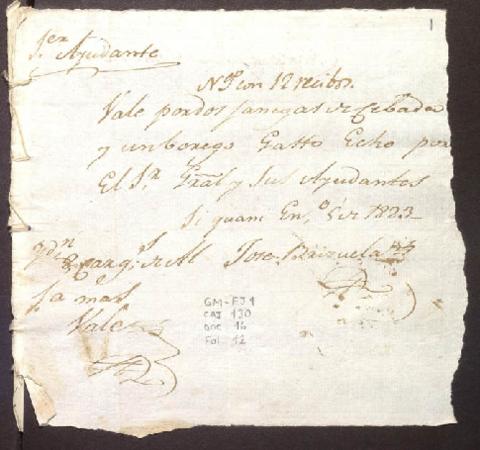 1
1er
Ayudante
No con 12 recibos.
Vale por dos fanegas de Cebada
y un borego Gasto Echo por
El Sr. Gral y Sus Ayudantes
Siguani En.o 5 de 1823
Jose Brizuela
mas
Vale
GM-EJ1
CAJ 130
DOC 16
Fol. 12